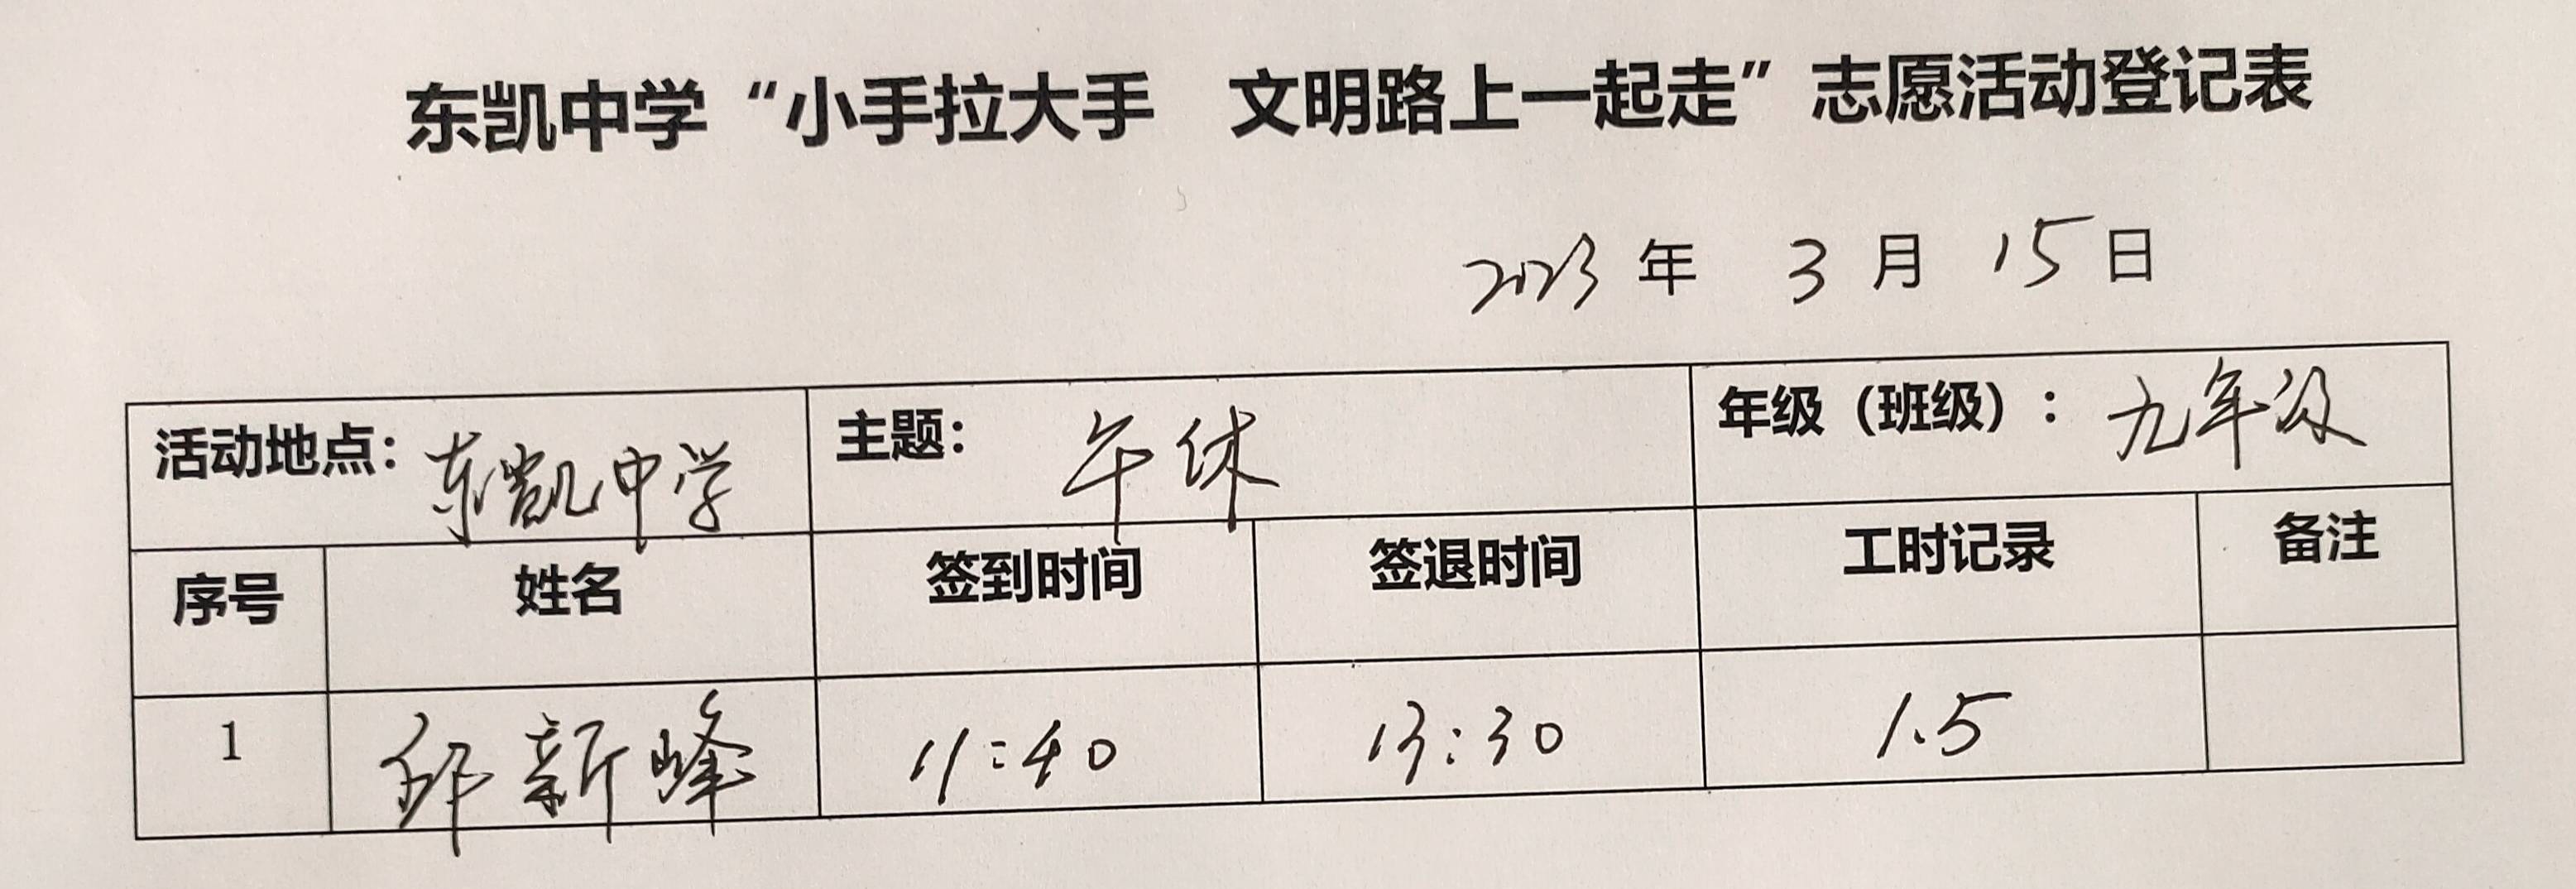 东凯中学“小手拉大手 文明路上一起走”志愿活动登记表
2023年 3月 15日
活动地点：东凯中学 主题：午休 年级（班级）：九年级
序号 姓名 签到时间 签退时间 工时记录 备注
1 邱新峰 11:40 13:30 1.5